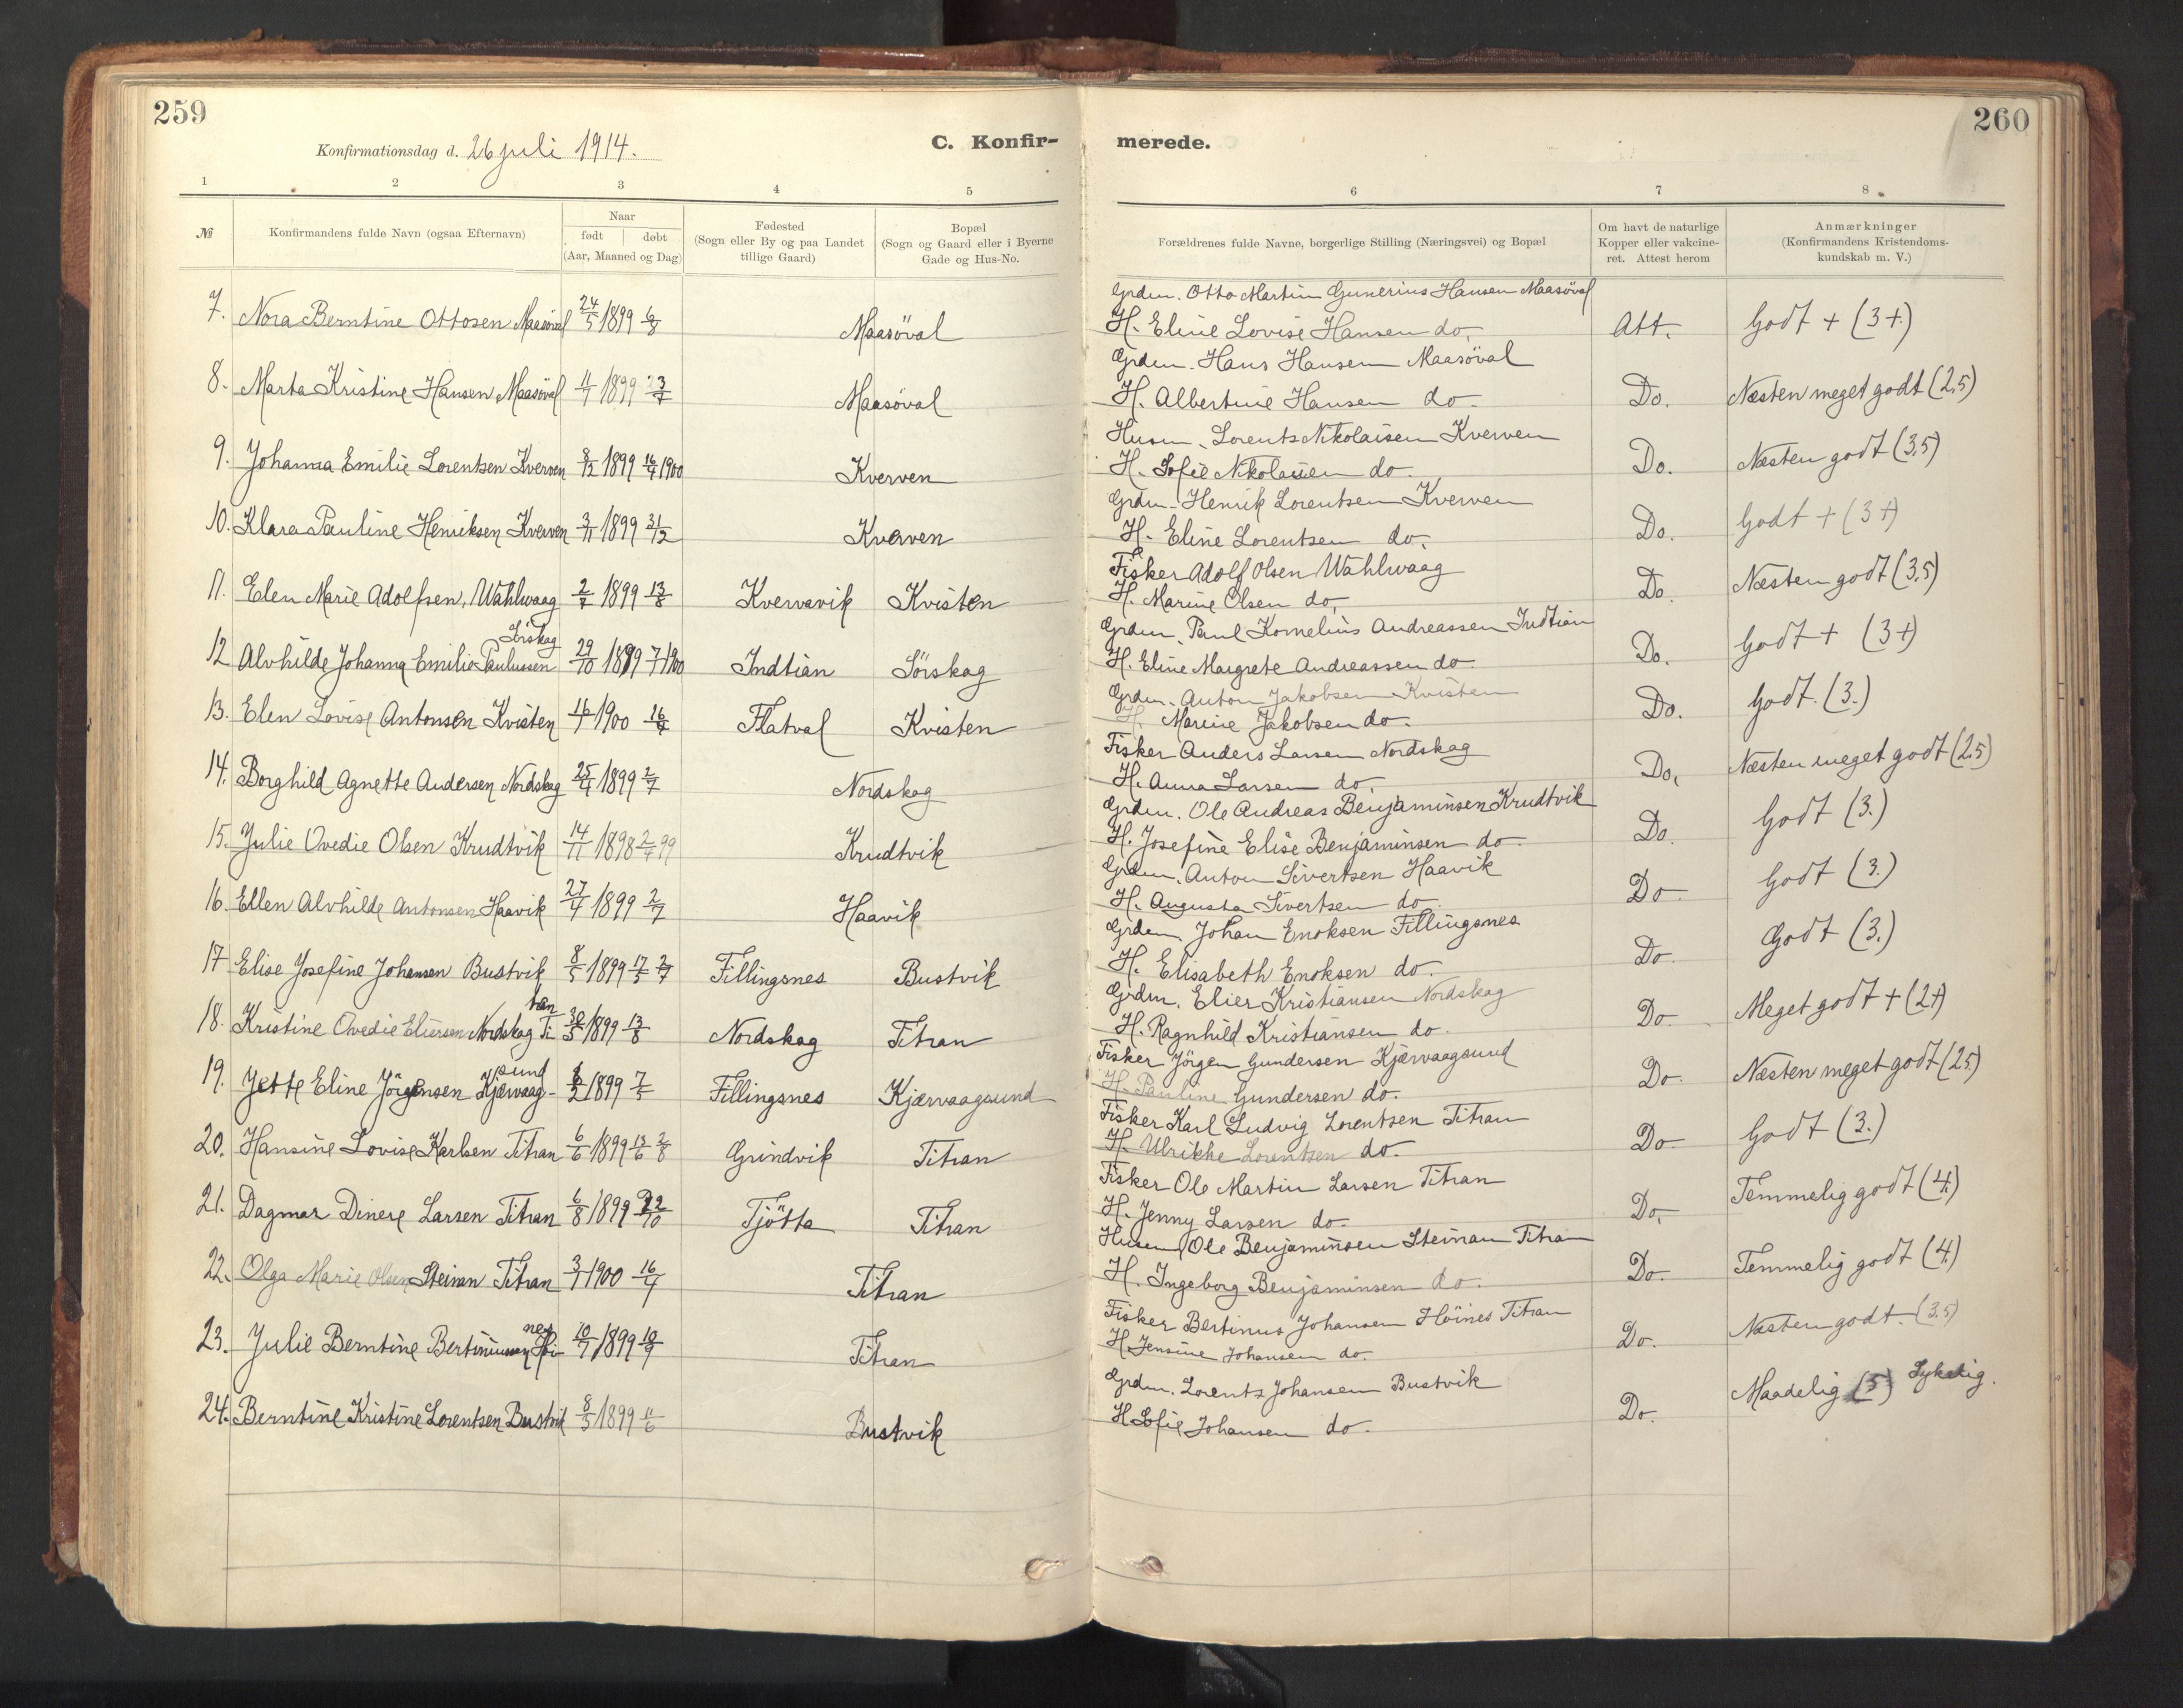 259
260
Konfirmationsdag d. 26 juli 1914.
C. Konfir-
merede.
1 2 3 4 5 6 7 8
№ Konfirmandens fulde Navn (ogsaa Efternavn) Naar født døbt (Aar, Maaned og Dag)
Fødested (Sogn eller By og paa Landet tillige Gaard)
Bopæl (Sogn og Gaard eller i Byerne Gade og Hus-No.
Forældrenes fulde Navne, borgerlige Stilling (Næringsvei) og Bopæl
Om havt de naturlige Kopper eller vakcineret. Attest herom
Anmærkninger (Konfirmandens Kristendomskundskab m. V.)
7. Nora Berntine Ottosen Maasöval 24/5 1899 6/8 Maasöval
Grdm. Otto Martin Gunerius Hansen Maasöval
H. Eline Lovise Hansen do. Att. Godt + (3+)
8. Marta Kristine Hansen Maasöval 1899 Maasöval
Grdm. Hans Hansen Maasöval
H. Albertine Hansen do. Do. Næsten meget godt (2.5)
9. Johanna Emilie Lorentsen Kverven 8/12 1899 16/4 1900 Kverven
Husm. Lorents Nikolaisen Kverven
H. Sofie Nikolaisen do. Do. Næsten godt (3.5)
10. Klara Pauline Henriksen Kverven 3/11 1899 31/12 Kverven
Grdm. Henrik Lorentsen Kverven
H. Eline Lorentsen do. Do. Godt + (3+)
11. Elen Marie Adolfsen, Wahlvaag 2/7 1899 13/8 Kvervavik Kvisten
Fisker Adolf Olsen Wahlvaag
H. Marine Olsen do. Do. Næsten godt (3.5)
12 Alvhilde Johanna Emilie Paulussen Sörskag 29/10 1899 7/1 1900 Indtian Sörskag
Grdm. Paul Kornelius Andreassen Indtian
H. Eline Margrete Andreassen do. Do. Godt + (3+)
13. Elen Lovise Antonsen Kvisten 16/1 1900 16/4 Flatval Kvisten
Grdm. Anton Jakobsen Kvisten
H. Marine Jakobsen do. Do. Godt. (3.)
14. Borghild Agnette Andersen Nordskag 25/4 1899 2/7 Nordskag
Fisker Anders Larsen Nordskag
H. Anna Larsen do. Do. Næsten meget godt (2.5)
15. Julie Ovedie Olsen Krudtvik 14/11 1898 2/4 99 Krudtvik
Grdm. Ole Andreas Benjaminsen Krudtvik
H. Josefine Elise Benjaminsen do. Do. Godt (3.)
16. Ellen Alvhilde Antonsen Haavik 27/4 1899 2/7 Haavik
Grdm. Anton Sivertsen Haavik
H. Augusta Sivertsen do. Do. Godt (3.)
17 Elise Josefine Johansen Bustvik 8/5 1899 17/5 2/7 Fillingsnes Bustvik
Grdm. Johan Enoksen Fillingsnes
H. Elisabeth Enoksen do. Do. Godt (3.)
18. Kristine Ovedie Eliersen Nordskag Titran 30/5 1899 13/8 Nordskag Titran
Grdm. Elier Kristiansen Nordskag
H. Ragnhild Kristiansen do. Do. Meget godt + (2+)
19. Jette Eline Jörgensen Kjærvaagsund 1899 7/5 Fillingsnes Kjærvaagsund
Fisker Jörgen Gundersen Kjærvaagsund
H. Pauline Gundersen do. Do. Næsten meget godt (2.5)
20. Hansine Lovise Karlsen Titran 6/6 1899 13/6 2/8 Grindvik Titran
Fisker Karl Ludvig Lorentsen Titran
H. Ulrikke Lorentsen do. Do. Godt (3.)
21. Dagmar Dinere Larsen Titran 6/8 1899 22/10 Tjötta Titran
Fisker Ole Martin Larsen Titran
H. Jenny Larsen do. Do. Temmelig godt (4.)
22. Olga Marie Olsen Steinan Titran 3/1 1900 16/4 Titran
Husm. Ole Benjaminsen Steinan Titran
H. Ingeborg Benjaminsen do. Do. Temmelig godt (4.)
23. Julie Berntine Bertinussen Höines 10/7 1899 10/9 Titran
Fisker Bertinus Johansen Höines Titran
H. Jensine Johansen do. Do. Næsten godt. (3.5)
24. Berntine Kristine Lorentsen Bustvik 8/5 1899 11/6 Bustvik
Grdm. Lorents Johansen Bustvik
H. Sofie Johansen do. Do. Maadelig (5) Sykelig.